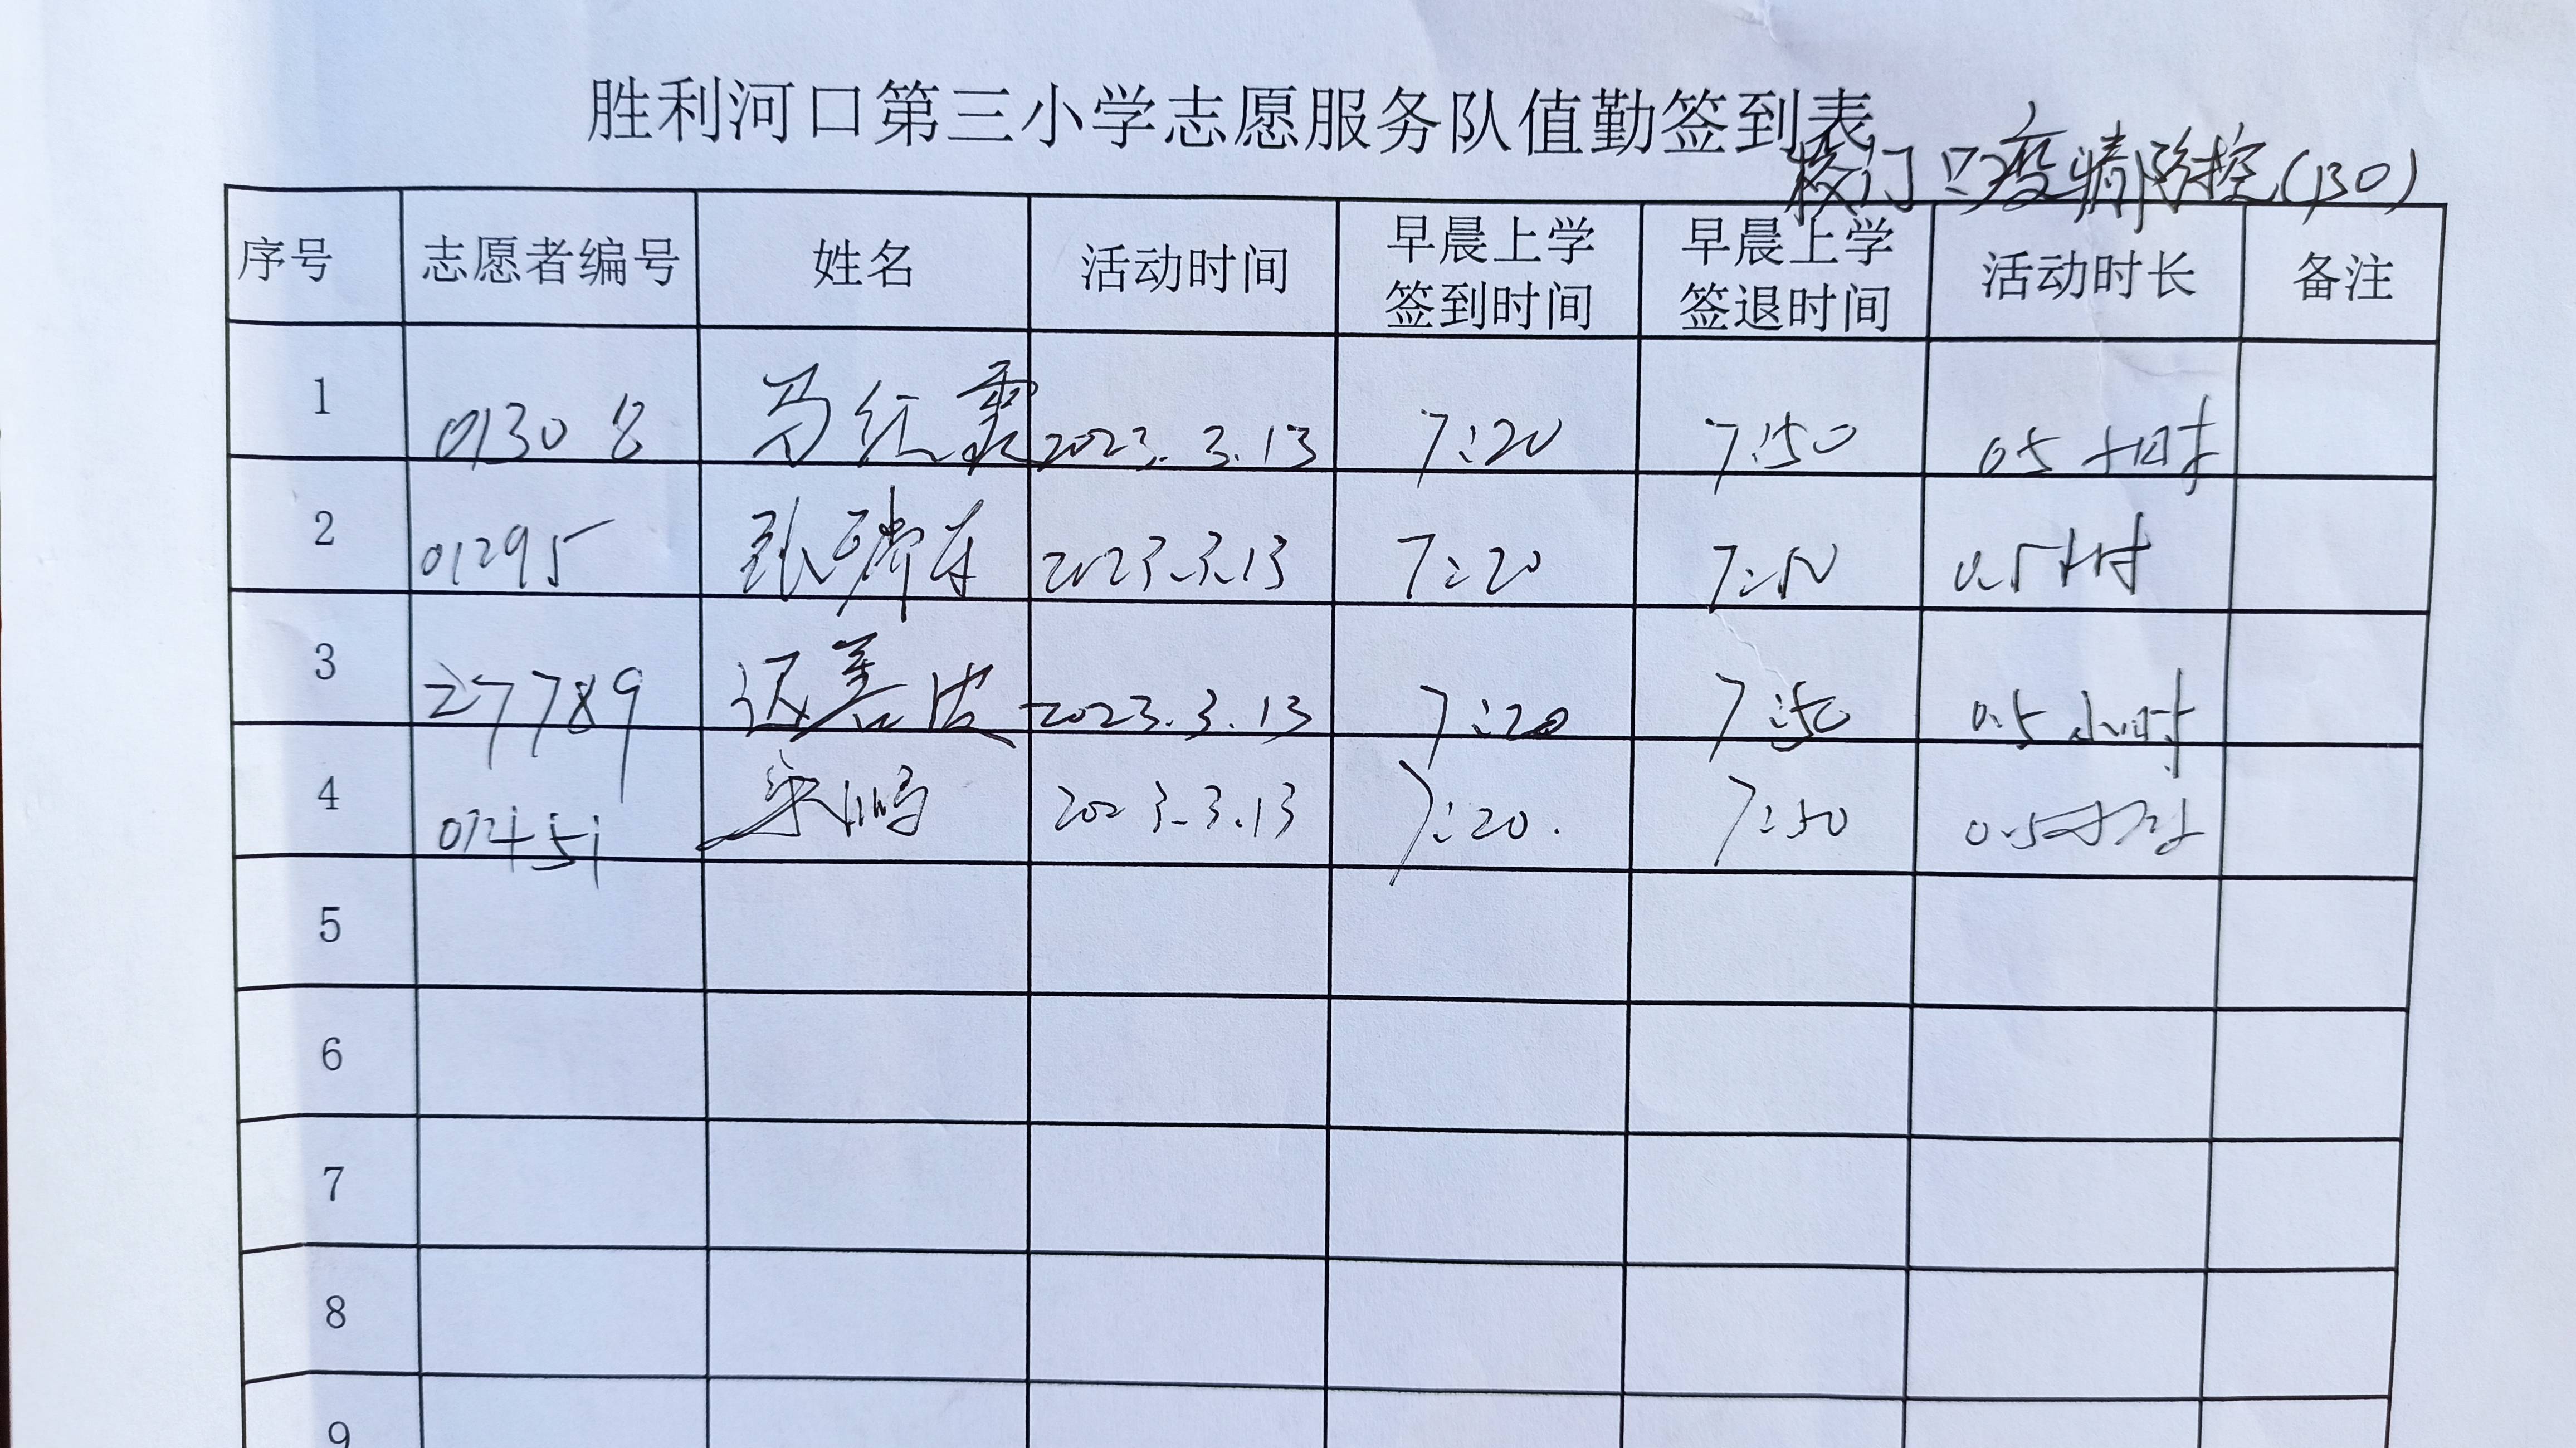 胜利河口第三小学志愿服务队值勤签到表
校门口疫情防控(130)
序号 志愿者编号 姓名 活动时间 早晨上学签到时间 早晨上学签退时间 活动时长 备注
1 01308 马红霞 2023.3.13 7:20 7:50 0.5小时
2 01295 张瑞 2023.3.13 7:20 7:50 0.5小时
3 27789 2023.3.13 7:20 7:50 0.5小时
4 宋鹏 2023.3.13 7:20. 7:50 0.5小时
5
6
7
8
9